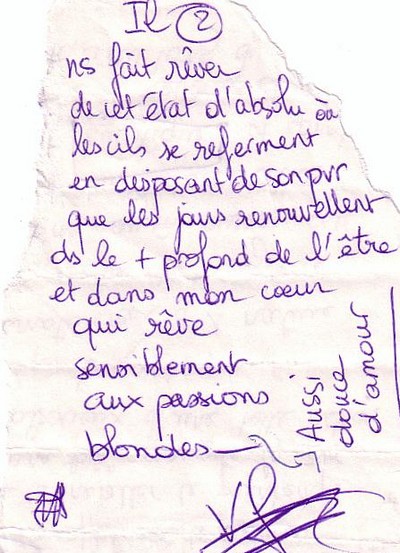 Il 2
ns fait rêver
de cet état d'absolu où
les cils se referment
en disposant de son pur
que les jours renouvellent
ds le + profond de l'être
et dans mon coeur
qui rêve
sensiblement
aux passions
blondes
Aussi
douce
d'amour